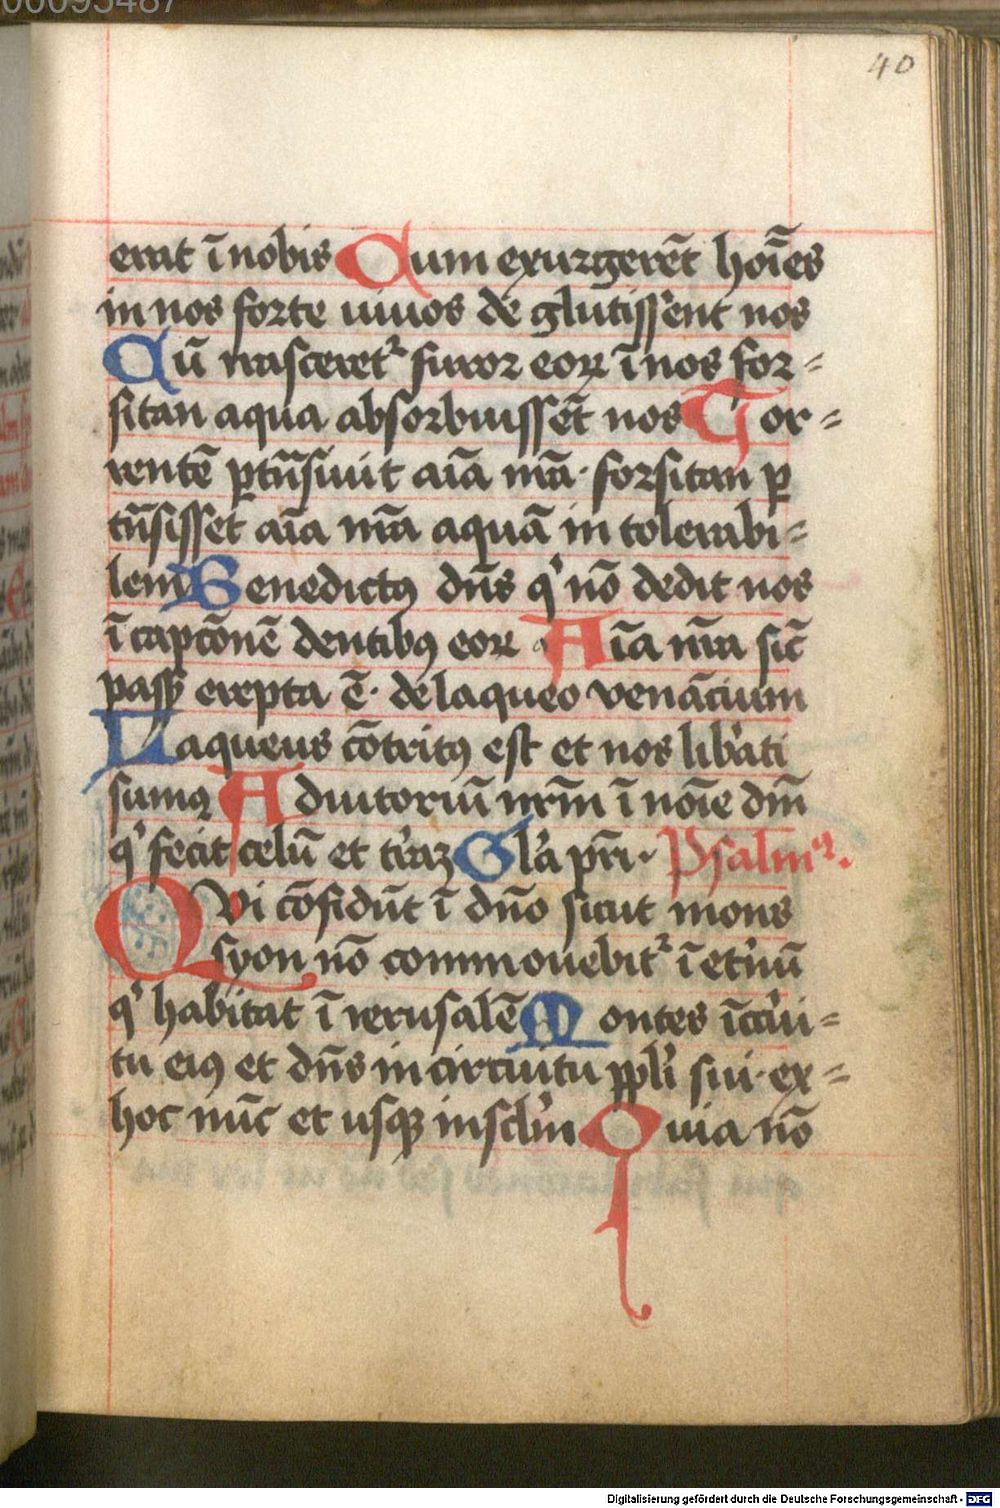 40
erat ī nobis Cum exurgerēt hoīes
in nos forte uiuos de glutissent nos
Cū irasceret᷑ furor eoꝝ ī nos for-
sitan aqua absorbuissēt nos Tor-
rentē ꝑtn̄siuit aīa nr̄a · forsitan ꝑ
tn̄sisset aīa nr̄a aquā in tolerabi-
lem Benedictꝰ dn̄s qͥ nō dedit nos
ī captōnē dentibꝰ eoꝝ Aīa nr̄a sic̄
passꝰ erepta ē · de laqueo venācium
Laqueus cōtritꝰ est et nos lib̓ati
sumꝰ Adiutoriū nr̄m ī noīe dn̄i
qͥ fecit celū et t̓raʒ Gl̓a pr̄i · Psalmꝰ.
Qvi cōfidūt ī dn̄o sicut mons
syon nō commouebit᷑ ī et̓nū
qͥ habitat ī ierusalē Montes īc̓cui-
tu eiꝰ et dn̄s in circuitu ppl̓i sui · ex-
hoc nūc et usqꝫ in sclm̄ Quia nō
Digitalisierung gefördert durch die Deutsche Forschungsgemeinschaft - DFG